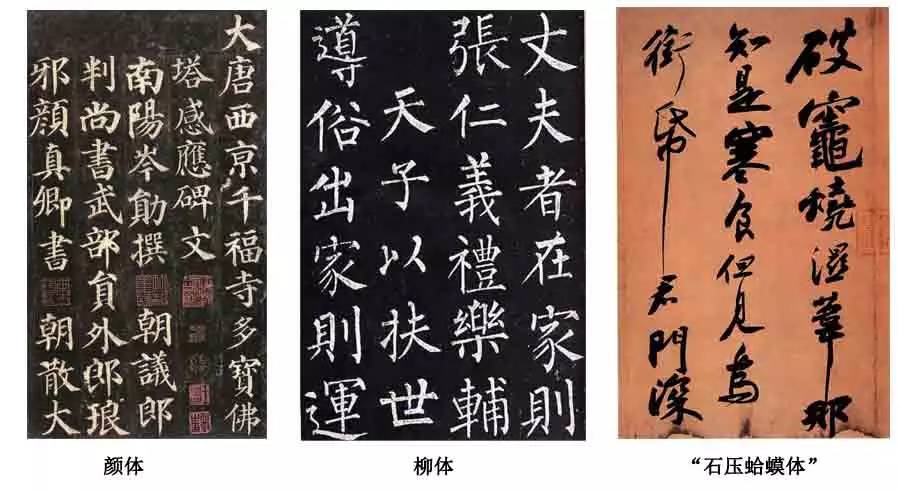 大唐西京千福寺多寶佛
塔感應碑文
南陽岑勛撰 朝議郎
判尚書武部員外郎琅
邪顏真卿書 朝散大
颜体
丈夫者在家則
張仁義禮樂輔
天子以扶世
導俗出家則運
柳体
破竈燒濕葦那
知是寒食但見烏
銜帋君門深
“石压蛤蟆体”